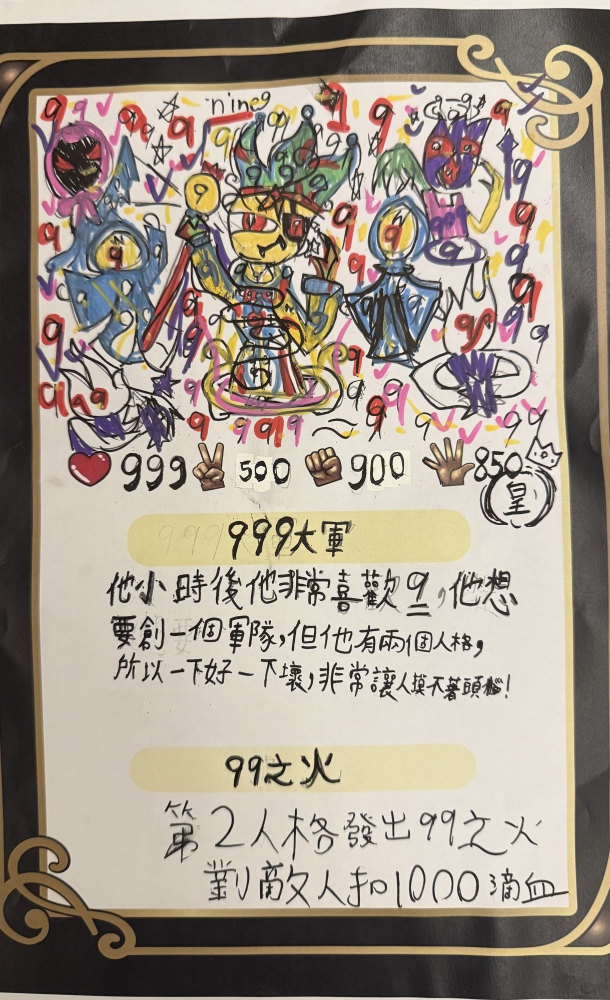 nine
999 500 900 850
皇
999大軍
他小時後他非常喜歡9,他想
要創一個軍隊,但他有兩個人格,
所以一下好一下壞,非常讓人摸不著頭腦!
99之火
第2人格發出99之火
對敵人扣1000滴血